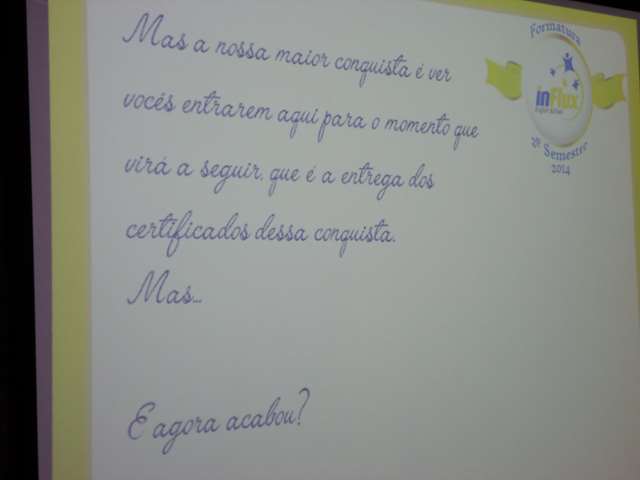 Mas a nossa maior conquista é ver
vocês entrarem aqui para o momento que
virá a seguir, que é a entrega dos
certificados dessa conquista.
Mas...
E agora acabou?
Formatura
inFlux
2º Semestre
2014